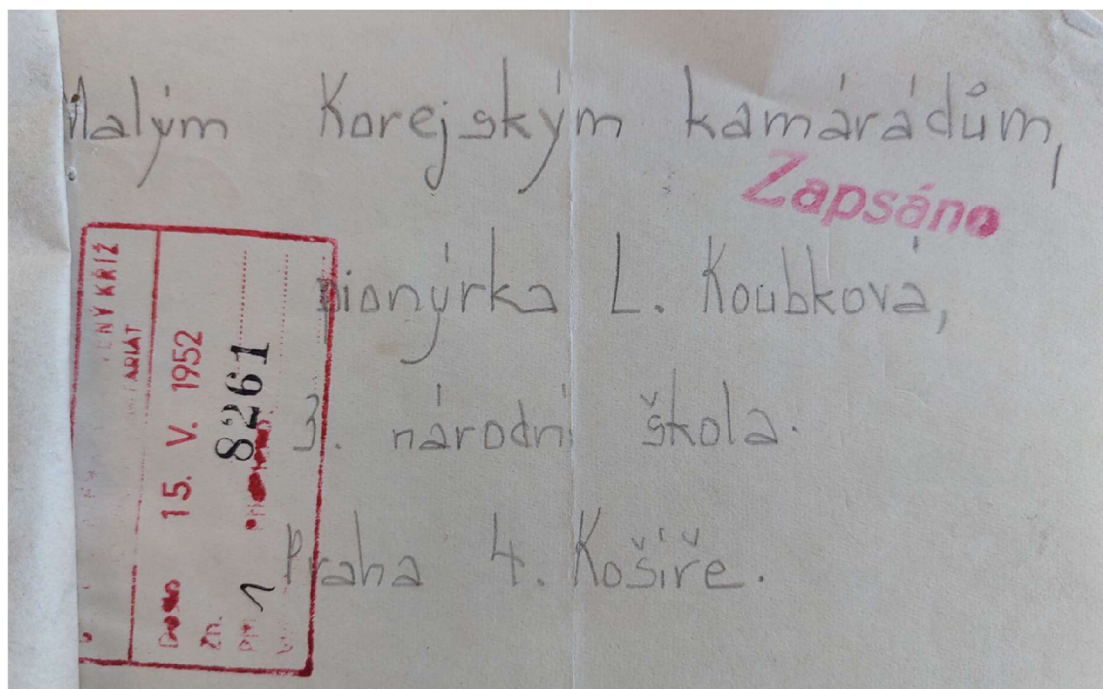 Malým Korejským kamárádům,
Zapsáno
pionýrka L. Koubková,
3. národní škola.
Praha 4. Košíře.
KŘÍŽ
Došlo 15. V. 1952
Zn.
8261